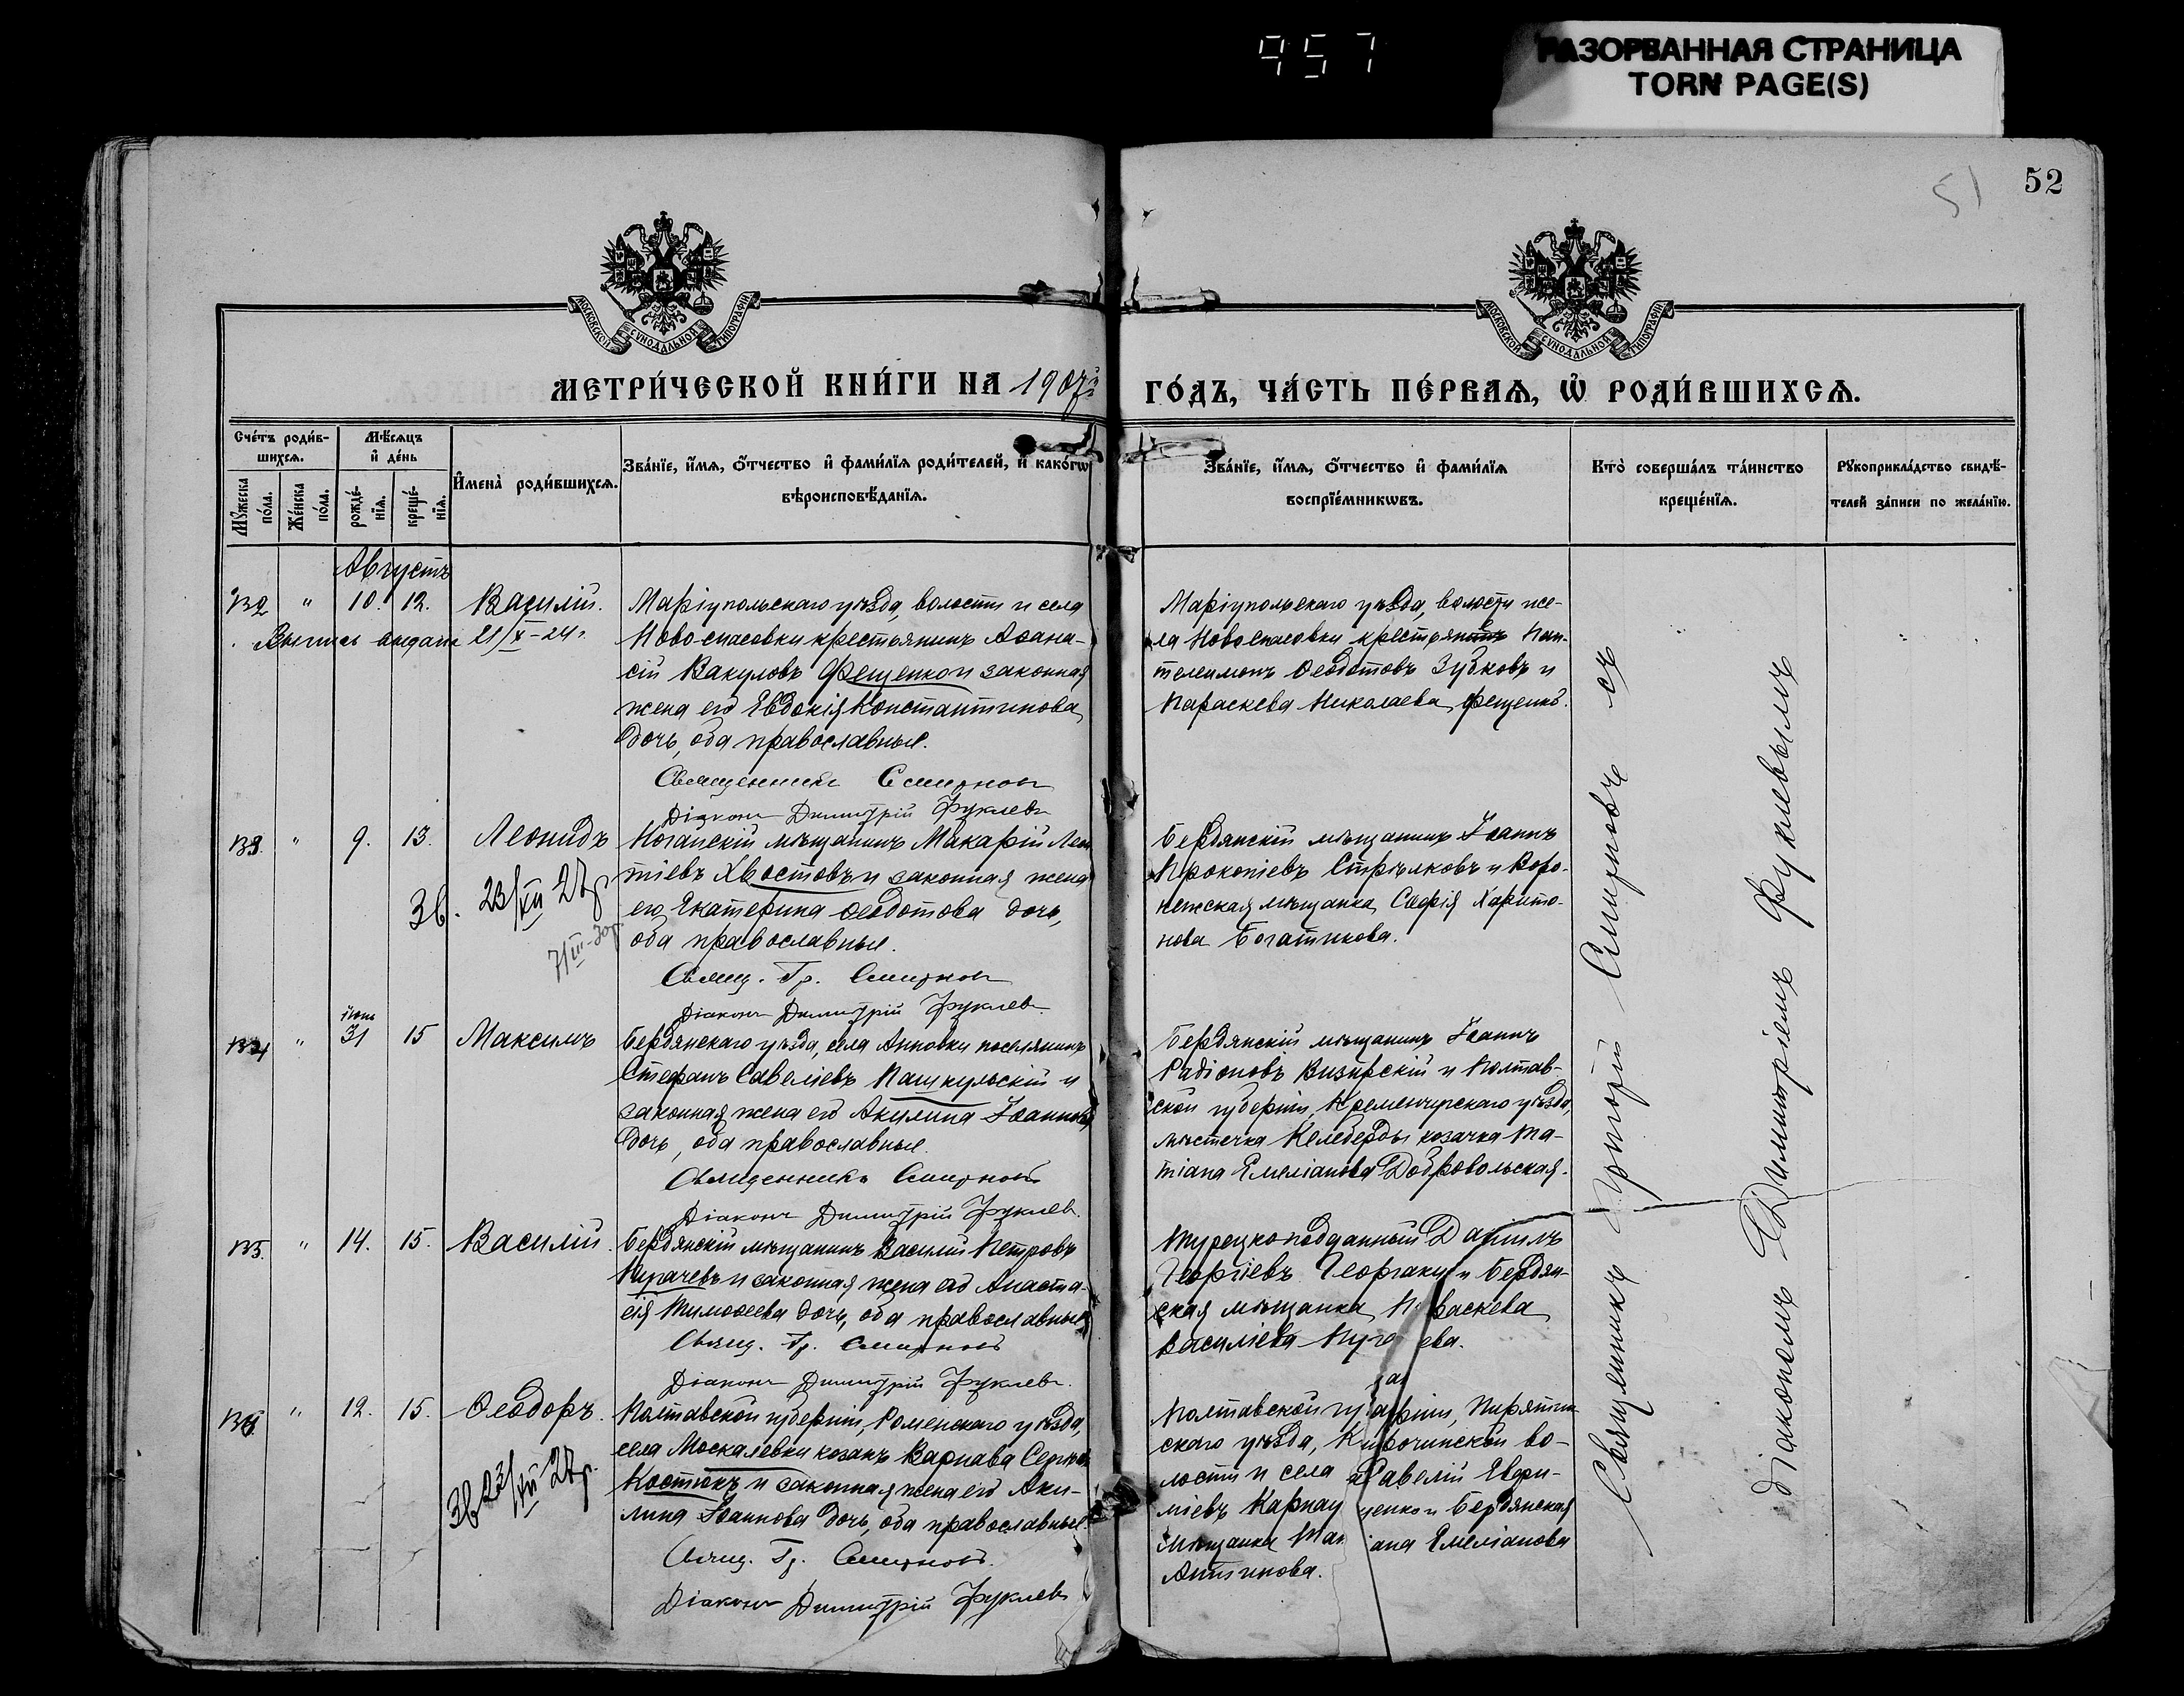 957
РАЗОРВАННАЯ СТРАНИЦА
TORN PAGE(S)
51
52
МОСКОВСКОЙ СѴНОДАЛЬНОЙ ТИПОГРАФІИ
МОСКОВСКОЙ СѴНОДАЛЬНОЙ ТИПОГРАФІИ
МЕТРИ́ЧЕСКОЙ КНИ́ГИ НА 1907й
ГО́ДЪ, ЧА́СТЬ ПЕ́РВАѦ, Ѡ҆ РОДИ́ВШИХСѦ.
Сче́тъ роди́в-
шихсѧ.
Мѣ́сѧцъ
и҆ де́нь
Мꙋ́жеска по́ла.
Же́нска по́ла.
рожде́-
нїѧ.
креще́-
нїѧ.
И҆мена̀ роди́вшихсѧ.
Зва́нїе, и҆́мѧ, ѻ҆́тчество и҆ фами́лїѧ роди́телей, и҆ како́гѡ
вѣроисповѣ́данїѧ.
Зва́нїе, и҆́мѧ, ѻ҆́тчество и҆ фами́лїѧ
воспрїе́мникѡвъ.
Кто̀ соверша́лъ та́инство
креще́нїѧ.
Рꙋкоприкла́дство свидѣ́-
телей за́писи по жела́нїю.
Августъ
132 " 10. 12. Василій.
Выпись выдана 21/X-24 г.
Маріупольскаго уѣзда, волости и села
Ново-спасовки крестьянинъ Аѳана-
сій Вакуловъ Фещенко и законная
жена его Евдокія Константинова
дочь, оба православные.
Священникъ Смирновъ
Діаконъ Димитрій Фуклевъ
Маріупольскаго уѣзда, волости и се-
ла Новоспасовки крестьяне Пан-
телеимонъ Ѳеодотовъ Зубковъ и
Параскева Николаева Фещенко.
133. " 9. 13. Леонидъ
Зв. 23/XII 27 г
7/III-30г.
Ногайскій мѣщанинъ Макарій Леон
тіевъ Хвостовъ и законная жена
его Екатерина Ѳеодотова дочь,
оба православные.
Свящ. Гр. Смирновъ
Діаконъ Димитрій Фуклевъ
Бердянскій мѣщанинъ Іоаннъ
Прокопіевъ Стрѣлковъ и Воро-
нежская мѣщанка Софія Харито-
нова Богатикова.
134 " 31 15 Максимъ
Бердянскаго уѣзда, села Анновки поселянинъ
Стефанъ Савеліевъ Пащкульскій и
законная жена его Акулина Іоаннова
дочь, оба православные.
Священникъ Смирновъ
Діаконъ Димитрій Фуклев.
Бердянскій мѣщанинъ Іоаннъ
Радіоновъ Визирскій и Полтав-
ской губерніи, Кременчугскаго уѣзда,
мѣстечка Келеберды козачка Та-
тіана Емеліанова Добровольская.
135. " 14. 15. Василій.
Бердянскій мѣщанинъ Василій Петровъ
Пугачевъ и законная жена его Анаста-
сія Тимоѳеева дочь, оба православные
Свящ. Гр. Смирновъ
Діаконъ Димитрій Фуклевъ.
Турецкоподданный Даніилъ
Георгіевъ Георгаки и Бердян-
ская мѣщанка Параскева
Василіева Пуга ева.
136 " 12. 15. Ѳеодоръ.
Зв 23/XII-27 г.
Полтавской губерніи, Роменскаго уѣзда,
села Москалевки козакъ Варнава Сергіевъ
Костюкъ и законная жена его Аки-
лина Іоаннова дочь, оба православные
Свящ. Гр. Смирновъ.
Діаконъ Димитрій Фуклевъ
Полтавской губерніи, Пирятин-
скаго уѣзда, во-
лости и села Савелій Евфи-
міевъ Карнау ценко и Бердянская
мѣщанка Тат іана Емеліанова
Антикова.
Священникъ Григорій Смирновъ съ
діакономъ Димитріемъ Фуклевымъ